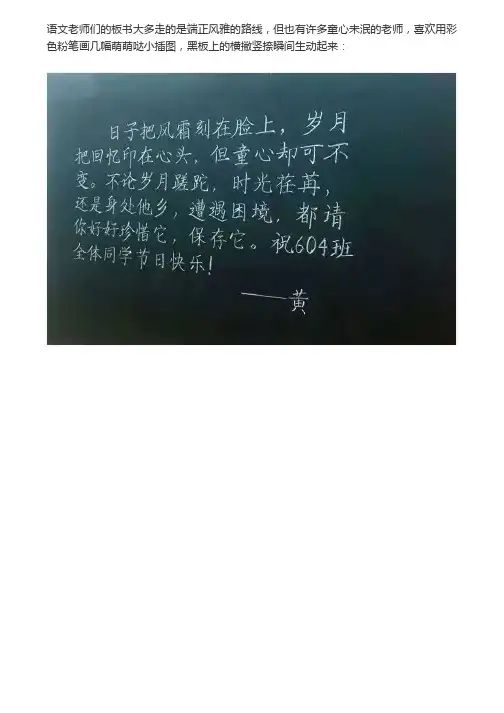 语文老师们的板书大多走的是端正风雅的路线，但也有许多童心未泯的老师，喜欢用彩
色粉笔画几幅萌萌哒小插图，黑板上的横撇竖捺瞬间生动起来：
日子把风霜刻在脸上，岁月
把回忆印在心头，但童心却可不
变。不论岁月蹉跎，时光荏苒，
还是身处他乡，遭遇困境，都请
你好好珍惜它，保存它。祝604班
全体同学节日快乐！
——黄